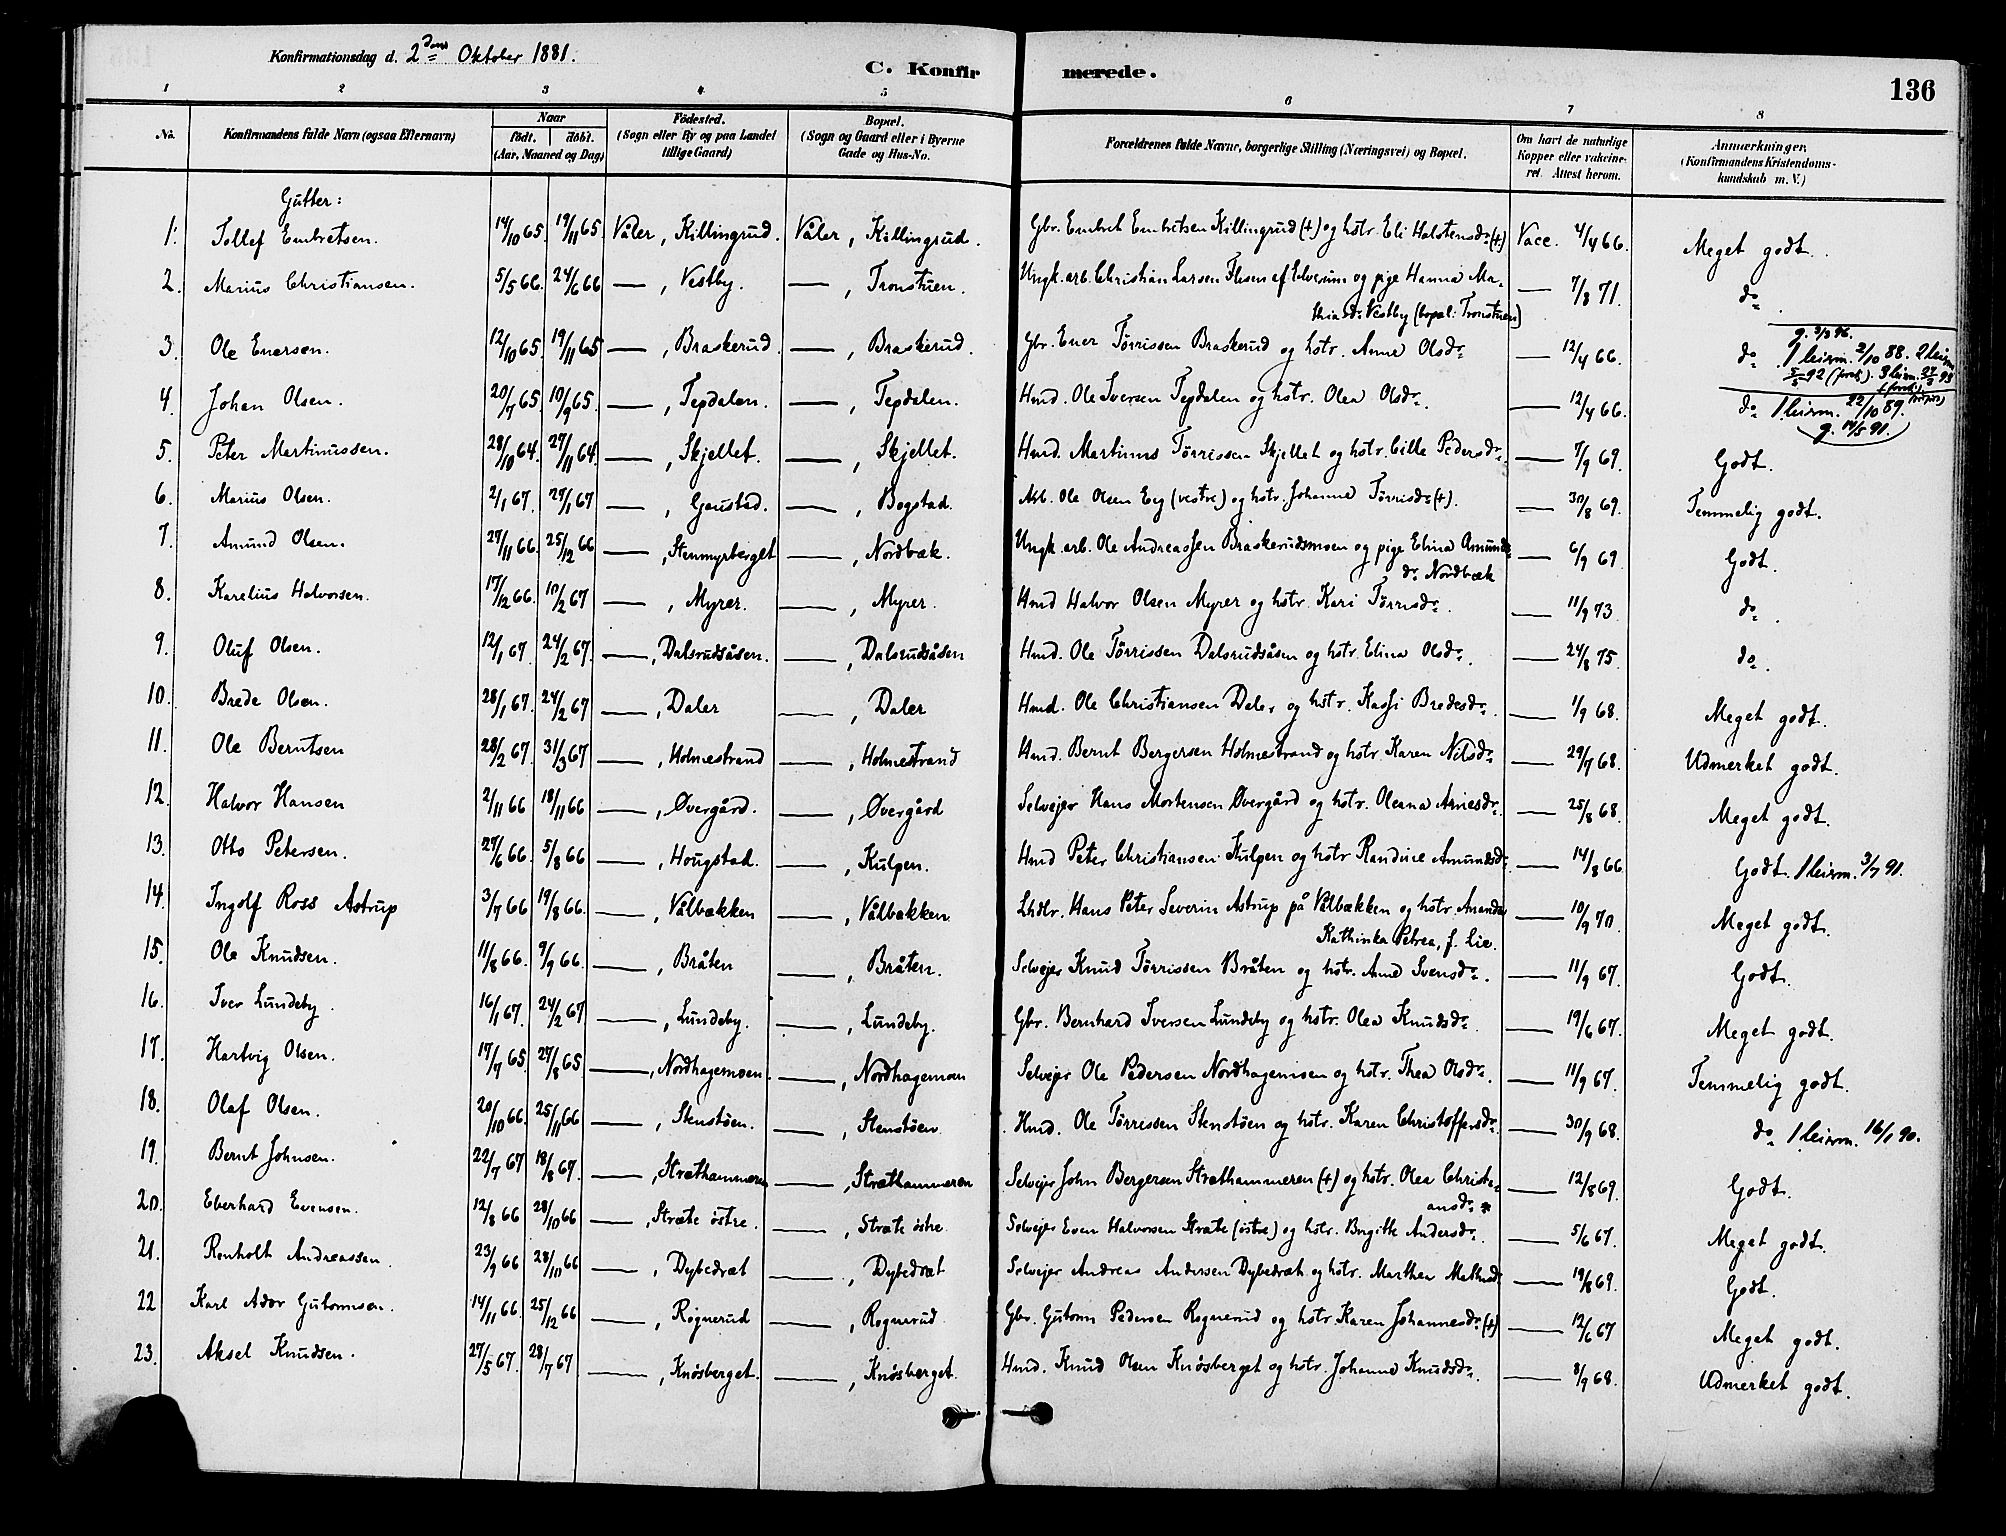 Konfirmationsdag d. 2den Oktober 1881.
C. Konfir merede. 136
1 2 3 4 5 6 7 8
No. Konfirmandens fulde Navn (ogsaa Efternavn) Naar födt. döbt. (Aar, Maaned og Dag) Födested. (Sogn eller By og paa Landet tillige Gaard) Bopæl. (Sogn og Gaard eller i Byerne Gade og Hus-No. Forældrenes fulde Navne, borgerlige Stilling (Næringsvei) og Bopæl. Om havt de naturlige Kopper eller vakcineret. Attest herom. Anmærkninger. (Konfirmandens Kristendomskundskab m. V.)
Gutter:
1. Tollef Embretsen. 14/10 65. 19/11 65. Våler, Killingrud. Våler, Killingrud. Gbr. Embret Embretsen Killingrud (+) og hstr. Eli Halstensdr. (+) Vacc. 4/4 66. Meget godt.
2. Marius Christiansen. 5/5 66. 24/6 66 —, Vestby. —, Tronstuen. Ungk. arb. Christian Larsen af Elverum og pige Hanna Ma-
thiasdr. Vestby (bopæl: Tronstuen) — 7/8 71. do
3. Ole Enersen. 12/10 65. 19/11 65 —, Braskerud. —, Braskerud. Gbr. Ener Tørrissen Braskerud og hstr. Anne Olsdr. — 12/4 66. do 1 leirm. 2/10 88. 2 leirm
4. Johan Olsen. 20/7 65. 10/9 65. —, Tepdalen. —, Tepdalen. Hmd. Ole Iversen Tepdalen og hstr. Olea Olsdr. — 12/4 66. do 1 leirm. 22/10 89.
g. 14/5 91.
5. Peter Martinussen. 28/10 64. 27/11 64. —, Skjellet. —, Skjellet. Hmd. Martinus Tørrissen Skjellet og hstr. Cille Pedersdr. — 7/9 69. Godt.
6. Marius Olsen. 2/1 67. 27/1 67 —, Gaustad. —, Bogstad. Arb. Ole Olsen Eg (vestre) og hstr. Johanne Tørrisdr. (+). — 30/8 69. Temmelig godt.
7. Amund Olsen. 27/11 66. 25/12 66 —, Stenmyrberget —, Nordbæk. Ungk. arb. Ole Andreassen Braskerudsmoen og pige Elina Amunds-
dr. Nordbæk — 6/9 69 Godt.
8. Karelius Halvorsen. 17/12 66. 10/2 67 —, Myrer. —, Myrer. Hmd Halvor Olsen Myrer og hstr. Kari Tørrisdr. — 11/9 73. do.
9. Oluf Olsen. 12/1 67. 24/2 67. —, Dalsrudsåsen. —, Dalsrudsåsen Hmd. Ole Tørrissen Dalsrudsåsen og hstr. Elina Olsdr. — 24/8 75. do.
10. Brede Olsen. 28/1 67. 24/2 67 —, Daler —, Daler Hmd. Ole Christiansen Daler og hstr. Kassi Bredesdr. — 1/9 68. Meget godt.
11. Ole Berntsen 28/2 67. 31/3 67 —, Holmestrand —, Holmestrand Hmd. Bernt Bergersen Holmestrand og hstr. Karen Nilsdr. — 29/7 68. Udmerket godt.
12. Halvor Hansen 2/11 66 18/11 66 —, Øvergård. —, Øvergård Selvejer Hans Mortensen Øvergård og hstr. Oleana Arnesdr. — 25/8 68. Meget godt.
13. Otto Petersen. 27/6 66. 5/8 66 —, Hougstad. —, Kulpen. Hmd Peter Christiansen Kulpen og hstr Randine Amundsdr. — 14/8 66 Godt. 1 leirm. 3/7 91.
14. Ingolf Ross Astrup 3/7 66 19/8 66. —, Vålbækken —, Vålbækken. Lhdlr. Hans Peter Severin Astrup på Vålbækken og hstr. Amanda
Kathinka Petrea, f. Lie. — 10/9 70. Meget godt.
15. Ole Knudsen. 11/8 66. 9/9 66. —, Bråten —, Bråten. Selvejer Knud Tørrissen Bråten og hstr. Anne Svensdr. — 11/9 67. Godt.
16. Iver Lundeby. 16/1 67. 24/2 67 —, Lundeby. —, Lundeby. Gbr. Bernhard Iversen Lundeby og hstr. Olea Knudsdr. — 19/6 67. Meget godt.
17. Hartvig Olsen. 17/7 65 27/8 65 —, Nordhagemoen. —, Nordhagemoen Selvejer Ole Pedersen Nordhagemoen og hstr. Thea Olsdr. — 11/9 67. Temmelig godt.
18. Olaf Olsen. 20/10 66. 25/11 66 —, Stenstøen. —, Stenstøen Hmd. Ole Tørrissen Stenstøen og hstr. Karen Christoffersdr. — 30/9 68. do 1 leirm. 16/1 90.
19. Bernt Johnsen. 22/7 67 18/8 67. —, Stræthammeren —, Stræthammeren Selvejer John Bergersen Stræthammeren (+) og hstr. Olea Christi-
ansdr. — 12/8 69. Godt.
20. Eberhard Evensen. 12/8 66 28/10 66 —, Stræte østre. —, Stræte østre Selvejer Even Halvorsen Stræte (østre) og hstr. Birgitte Andersdr. — 5/6 67. Meget godt.
21. Renholt Andreassen 23/9 66 28/10 66 —, Dybedræt —, Dybedræt Selvejer Andreas Andersen Dybedræt og hstr. Marthea — 19/8 69. Godt.
22 Karl Ador Gutormsen. 14/11 66. 25/12 66 —, Rognerud —, Rognerud Gbr. Gutorm Pedersen Rognerud og hstr. Karen Johannesdr. (+) — 12/6 67 Meget godt.
23. Aksel Knudsen. 27/5 67. 28/7 67 —, Knøsberget. —, Knøsberget. Hmd. Knud Olsen Knøsberget og hstr. Johanne Knudsdr. — 8/9 68. Udmerket godt.